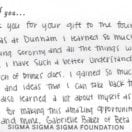 of you...
k you for your gift to the found
as at Dunham. I learned so much
ing sorority and all the things w
have such a better understand
of times dues. I gained so much
and ideas that I can take back t
also learned a lot about myself a
for making this amazing opportuni
and mine, Gabrielle Baker of Beta
SIGMA SIGMA SIGMA FOUNDATION